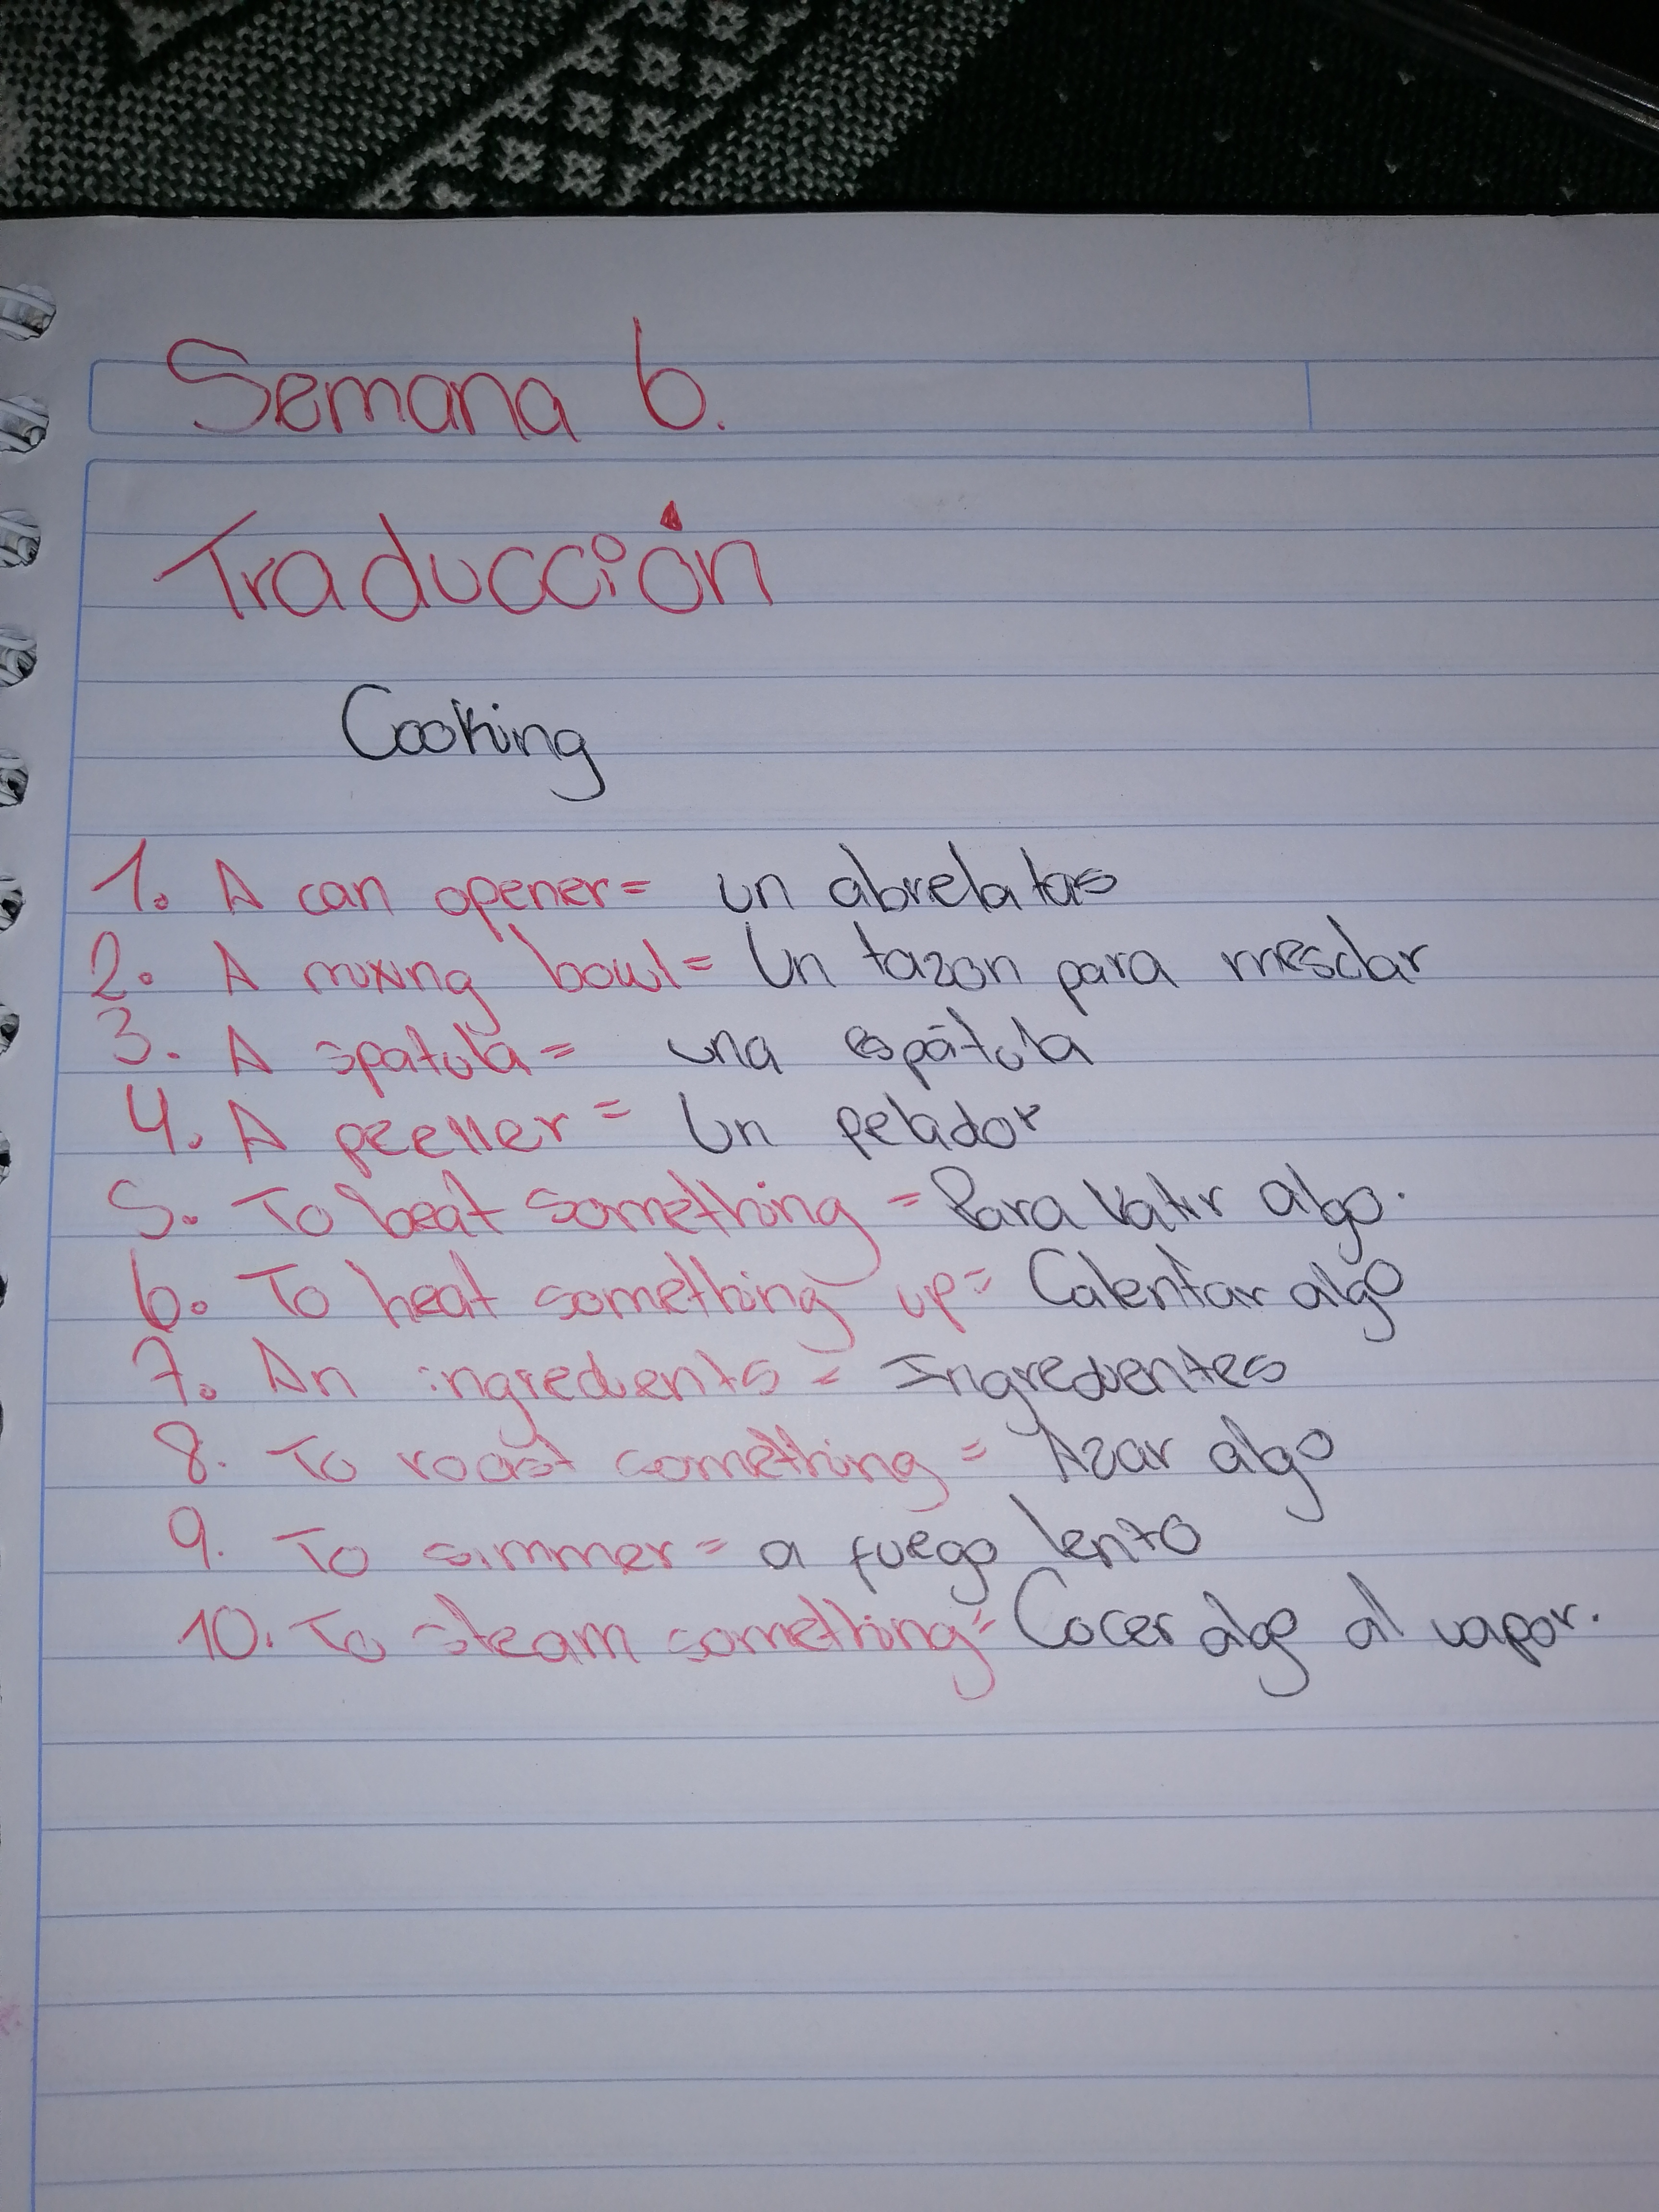 Semana 6.
Traducción
Cooking
1. A can opener = un abrelatas
2. A mixing bowl = Un tazon para mesclar
3. A spatula = una espátula
4. A peeller = Un pelador
5. To beat something = Para vatir algo.
6. To heat something up = Calentar algo
7. An ingredients = Ingredientes
8. To roast something = Azar algo
9. To simmer = a fuego lento
10. To steam something = Cocer algo al vapor.